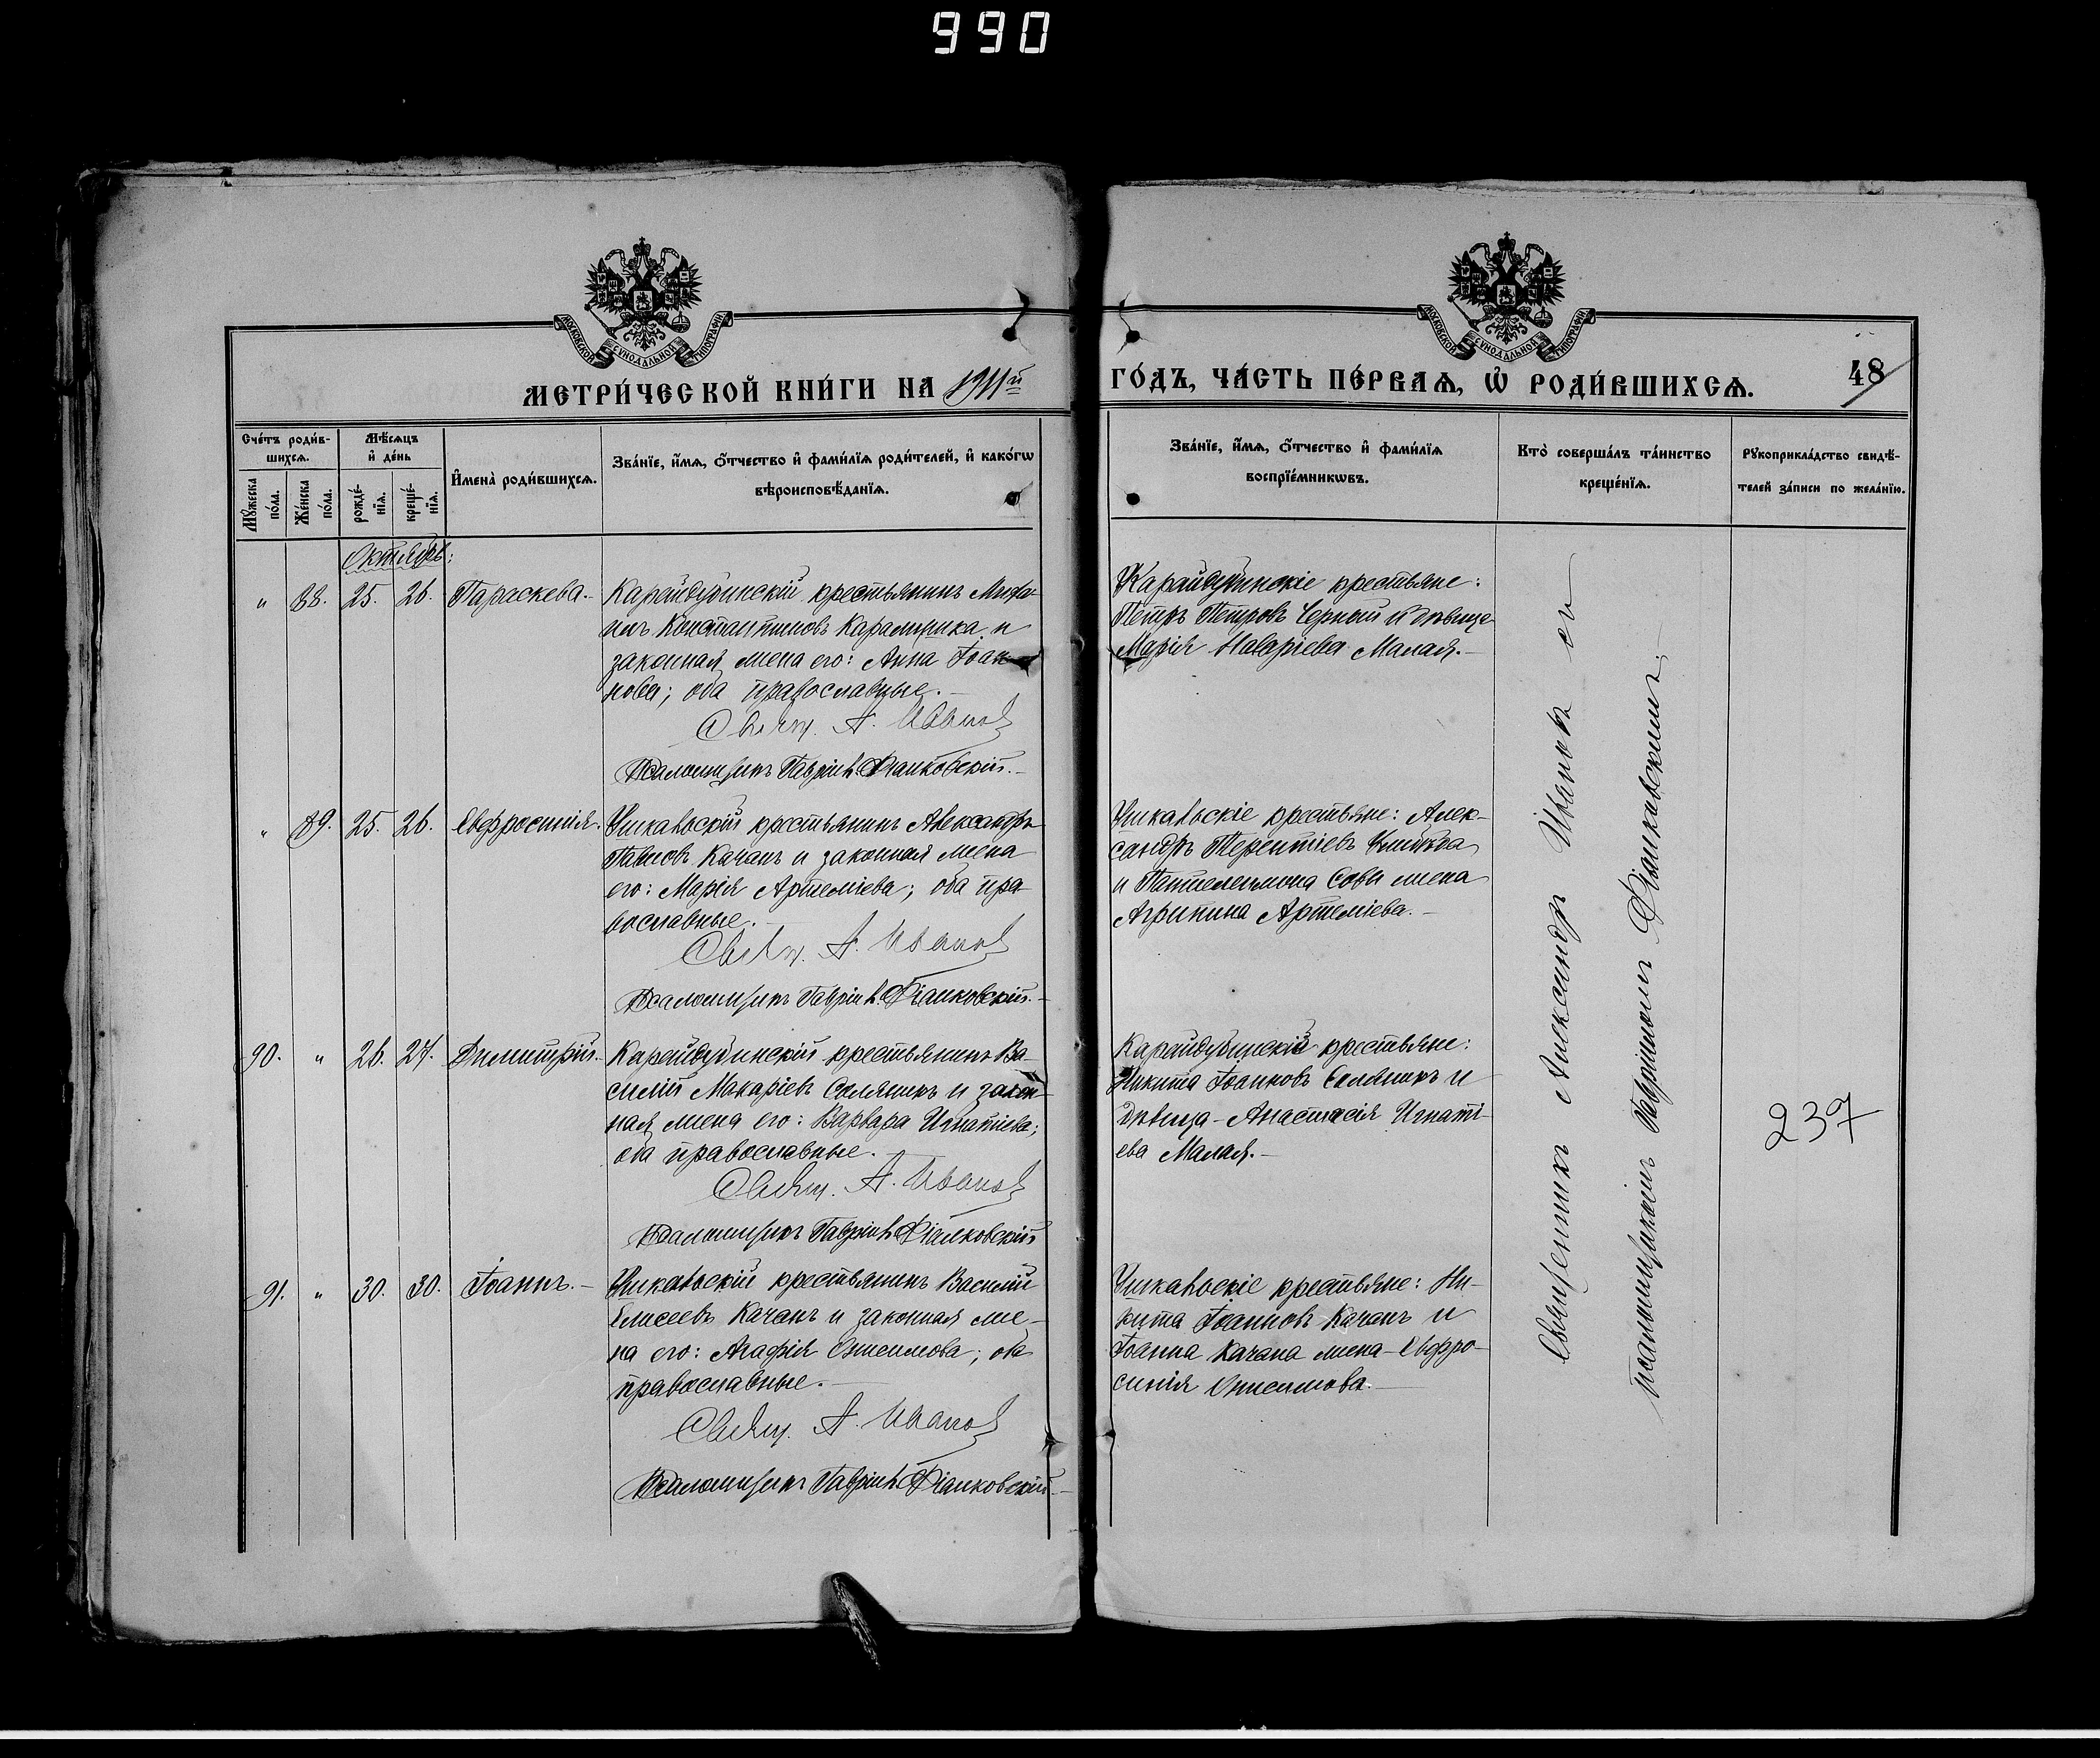 990
МОСКОВСКОЙ СѴНОДАЛЬНОЙ ТИПОГРАФІИ
МОСКОВСКОЙ СѴНОДАЛЬНОЙ ТИПОГРАФІИ
МЕТРИ́ЧЕСКОЙ КНИ́ГИ НА 1911й
ГО́ДЪ, ЧА́СТЬ ПЕ́РВАѦ, Ѡ҆ РОДИ́ВШИХСѦ.
48
Сче́тъ роди́в-
шихсѧ.
Мꙋ́жеска
по́ла.
Же́нска
по́ла.
Мѣ́сѧцъ
и҆ де́нь
рожде́-
нїѧ.
креще́-
нїѧ.
И҆мена̀ роди́вшихсѧ.
Зва́нїе, и҆́мѧ, ѻ҆́тчество и҆ фами́лїѧ роди́телей, и҆ како́гѡ
вѣроисповѣ́данїѧ.
Зва́нїе, и҆́мѧ, ѻ҆́тчество и҆ фами́лїѧ
воспрїе́мникѡвъ.
Кто̀ соверша́лъ та́инство
креще́нїѧ.
Рꙋкоприкла́дство свидѣ́-
телей за́писи по жела́нїю.
Октябрь:
" 88. 25. 26. Параскева.-
Карайдубинскій крестьянинъ
Константиновъ и
законная жена его: Анна Іоан-
нова; оба православные.-
Свящ. А. Ивановъ
Псаломщикъ Гавріилъ Фіалковскій.-
Карайдубинскіе крестьяне:
Петръ Петровъ Черный и дѣвица
Марія Малая.-
" 89. 25. 26. Евфросинія.
Ушкальскій крестьянинъ Александръ
Павловъ Качанъ и законная жена
его: Марія Артеміева; оба пра-
вославные.-
Свящ. А. Ивановъ
Псаломщикъ Гавріилъ Фіалковскій.-
Ушкальскіе крестьяне: Алек-
сандръ Терентіевъ
и Пантелеимона Совы жена
Агрипина Артеміева.-
90. " 26. 27. Димитрій.-
Карайдубинскій крестьянинъ Ва-
силій Макаріевъ Соляникъ и закон-
ная жена его: Варвара Игнатіева;
оба православные.-
Свящ. А. Ивановъ
Псаломщикъ Гавріилъ Фіалковскій
Карайдубинскіе крестьяне:
Никита Іоанновъ Соляникъ и
дѣвица - Анастасія Игнаті-
ева Малая.-
237
91. " 30. 30. Іоаннъ.-
Ушкальскій крестьянинъ Василій
Елисеевъ Качанъ и законная же-
на его: Агафія Онисимова; оба
православные.-
Свящ. А. Ивановъ
Псаломщикъ Гавріилъ Фіалковскій.-
Ушкальскіе крестьяне: Ни-
кита Іоанновъ Качанъ и
Іоанна Качана жена - Евфро-
синія Онисимова.-
Священникъ Александръ Ивановъ съ
псаломщикомъ Гавріиломъ Фіалковскимъ.-